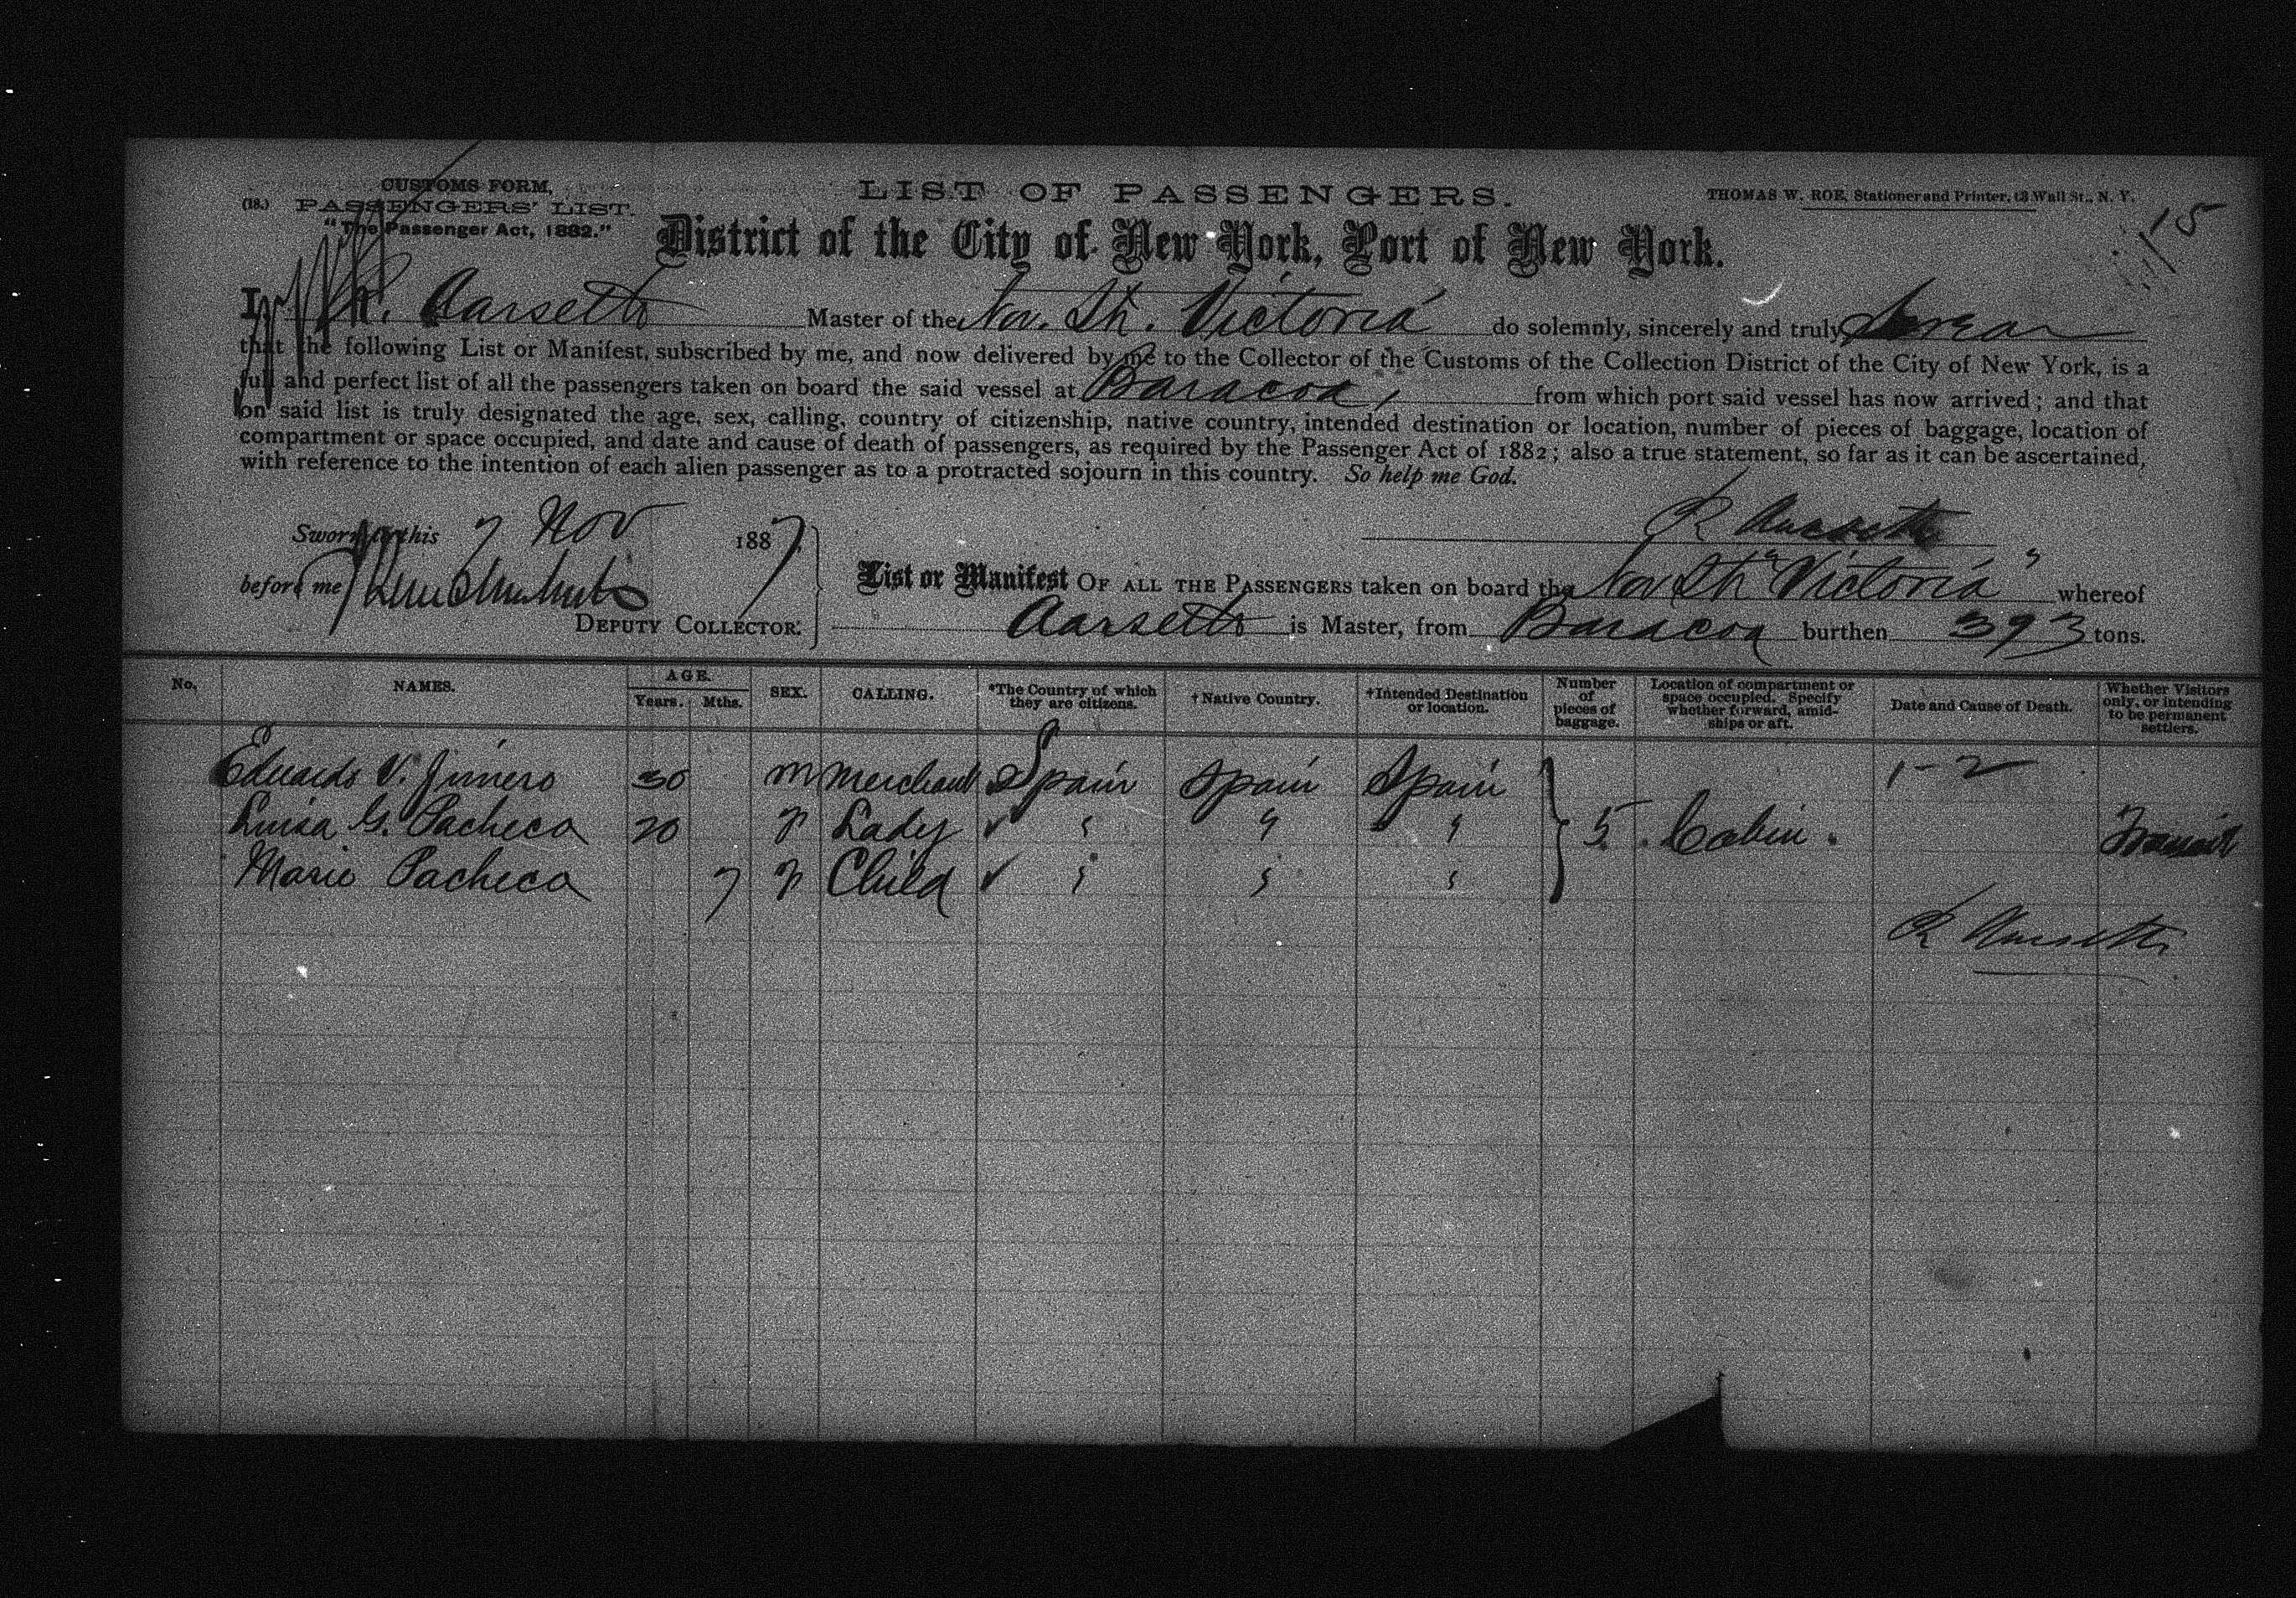 CUSTOMS FORM,
(18.) PASSENGERS' LIST.
"The Passenger Act, 1882."
LIST OF PASSENGERS.
THOMAS W. ROE, Stationer and Printer, 13 Wall St., N. Y.
District of the City of New York, Port of New York.
15
I, R. Aarseth Master of the Nov. Str. Victoria do solemnly, sincerely and truly swear
that the following List or Manifest, subscribed by me, and now delivered by me to the Collector of the Customs of the Collection District of the City of New York, is a
full and perfect list of all the passengers taken on board the said vessel at Baracoa, from which port said vessel has now arrived; and that
on said list is truly designated the age, sex, calling, country of citizenship, native country, intended destination or location, number of pieces of baggage, location of
compartment or space occupied, and date and cause of death of passengers, as required by the Passenger Act of 1882; also a true statement, so far as it can be ascertained,
with reference to the intention of each alien passenger as to a protracted sojourn in this country. So help me God.
Sworn to this 7 Nov 1887
R Aarseth
before me
DEPUTY COLLECTOR.
List or Manifest OF ALL THE PASSENGERS taken on board the Nov Str "Victoria" whereof
Aarseth is Master, from Baracoa burthen 393 tons.
No. NAMES. AGE. Years. Mths. SEX. CALLING. *The Country of which they are citizens. †Native Country. †Intended Destination or location. Number of pieces of baggage. Location of compartment or space occupied. Specify whether forward, amidships or aft. Date and Cause of Death. Whether Visitors only, or intending to be permanent settlers.
Eduardo V. Jimero 30 m Merchant Spain Spain Spain 1-2
Luisa G. Pacheco 20 F Lady ✓ " " " 5 Cabin. Transit
Marie Pacheco 7 F Child ✓ " " "
R Aarseth